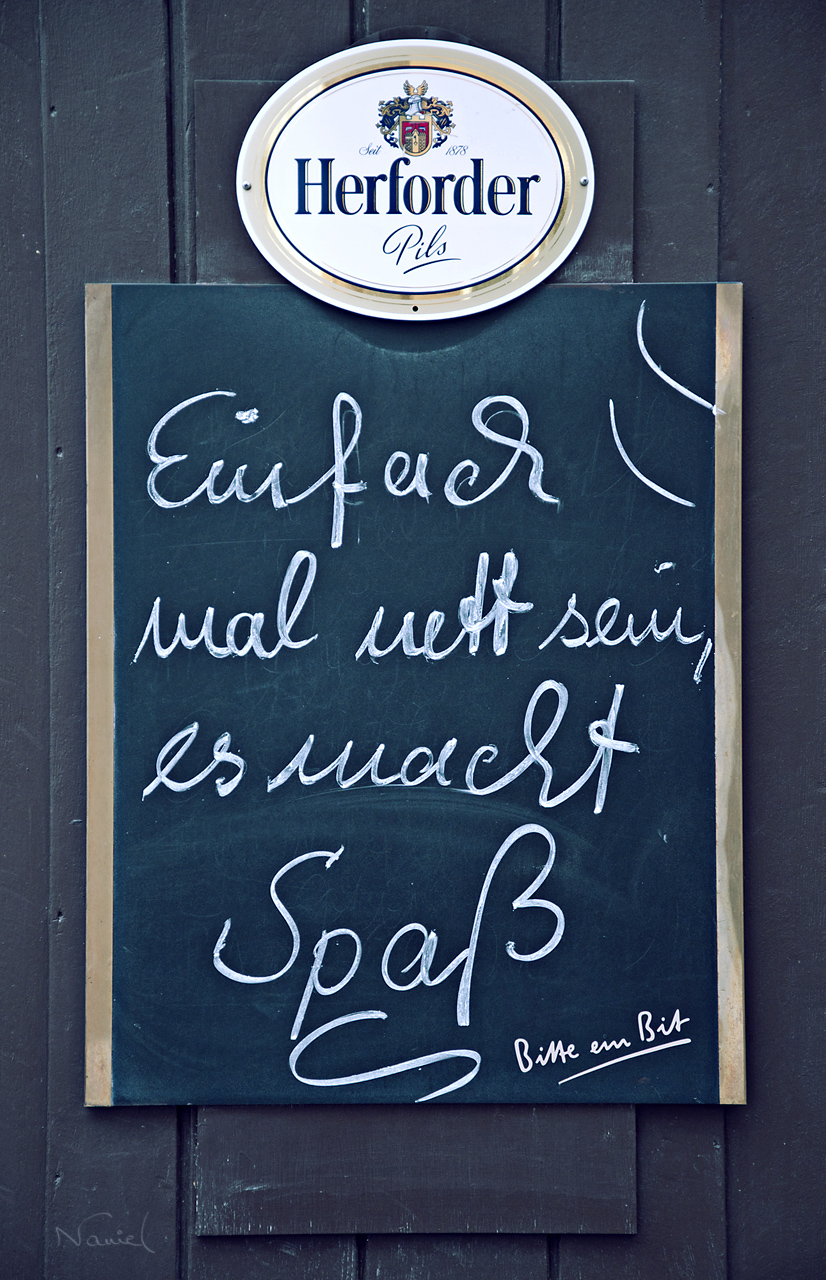 Seit 1878
Herforder
Pils
Einfach
mal nett sein,
es macht
Spaß
Bitte ein Bit
Naniel